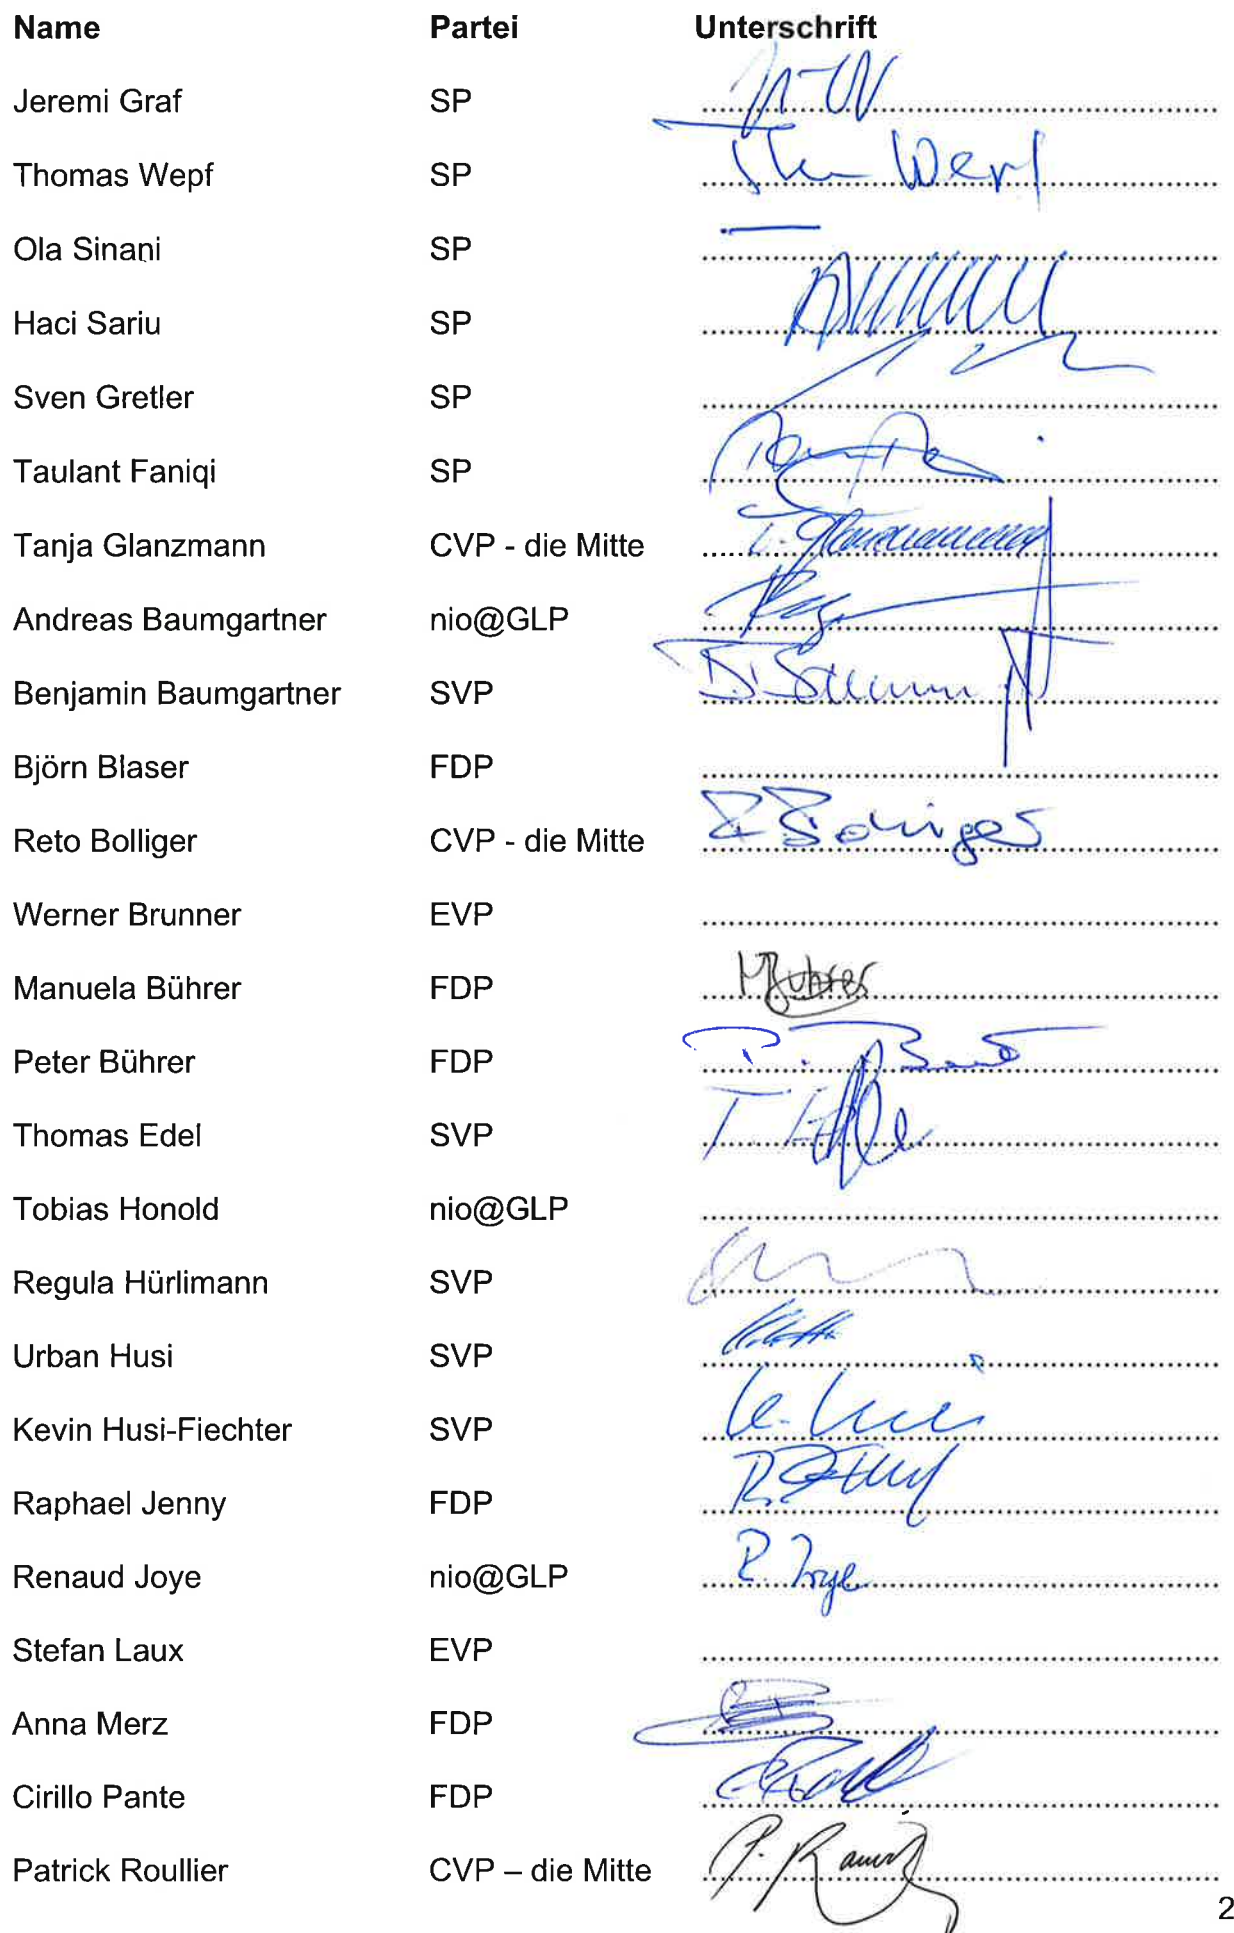 Name Partei Unterschrift
Jeremi Graf SP
Thomas Wepf SP Wepf
Ola Sinani SP
Haci Sariu SP
Sven Gretler SP
Taulant Faniqi SP
Tanja Glanzmann CVP - die Mitte T. Glanzmann
Andreas Baumgartner nio@GLP
Benjamin Baumgartner SVP
Björn Blaser FDP
Reto Bolliger CVP - die Mitte R Bolliger
Werner Brunner EVP
Manuela Bührer FDP M Bührer
Peter Bührer FDP
Thomas Edel SVP
Tobias Honold nio@GLP
Regula Hürlimann SVP
Urban Husi SVP
Kevin Husi-Fiechter SVP K. Husi
Raphael Jenny FDP
Renaud Joye nio@GLP R. Joye
Stefan Laux EVP
Anna Merz FDP
Cirillo Pante FDP
Patrick Roullier CVP – die Mitte
2